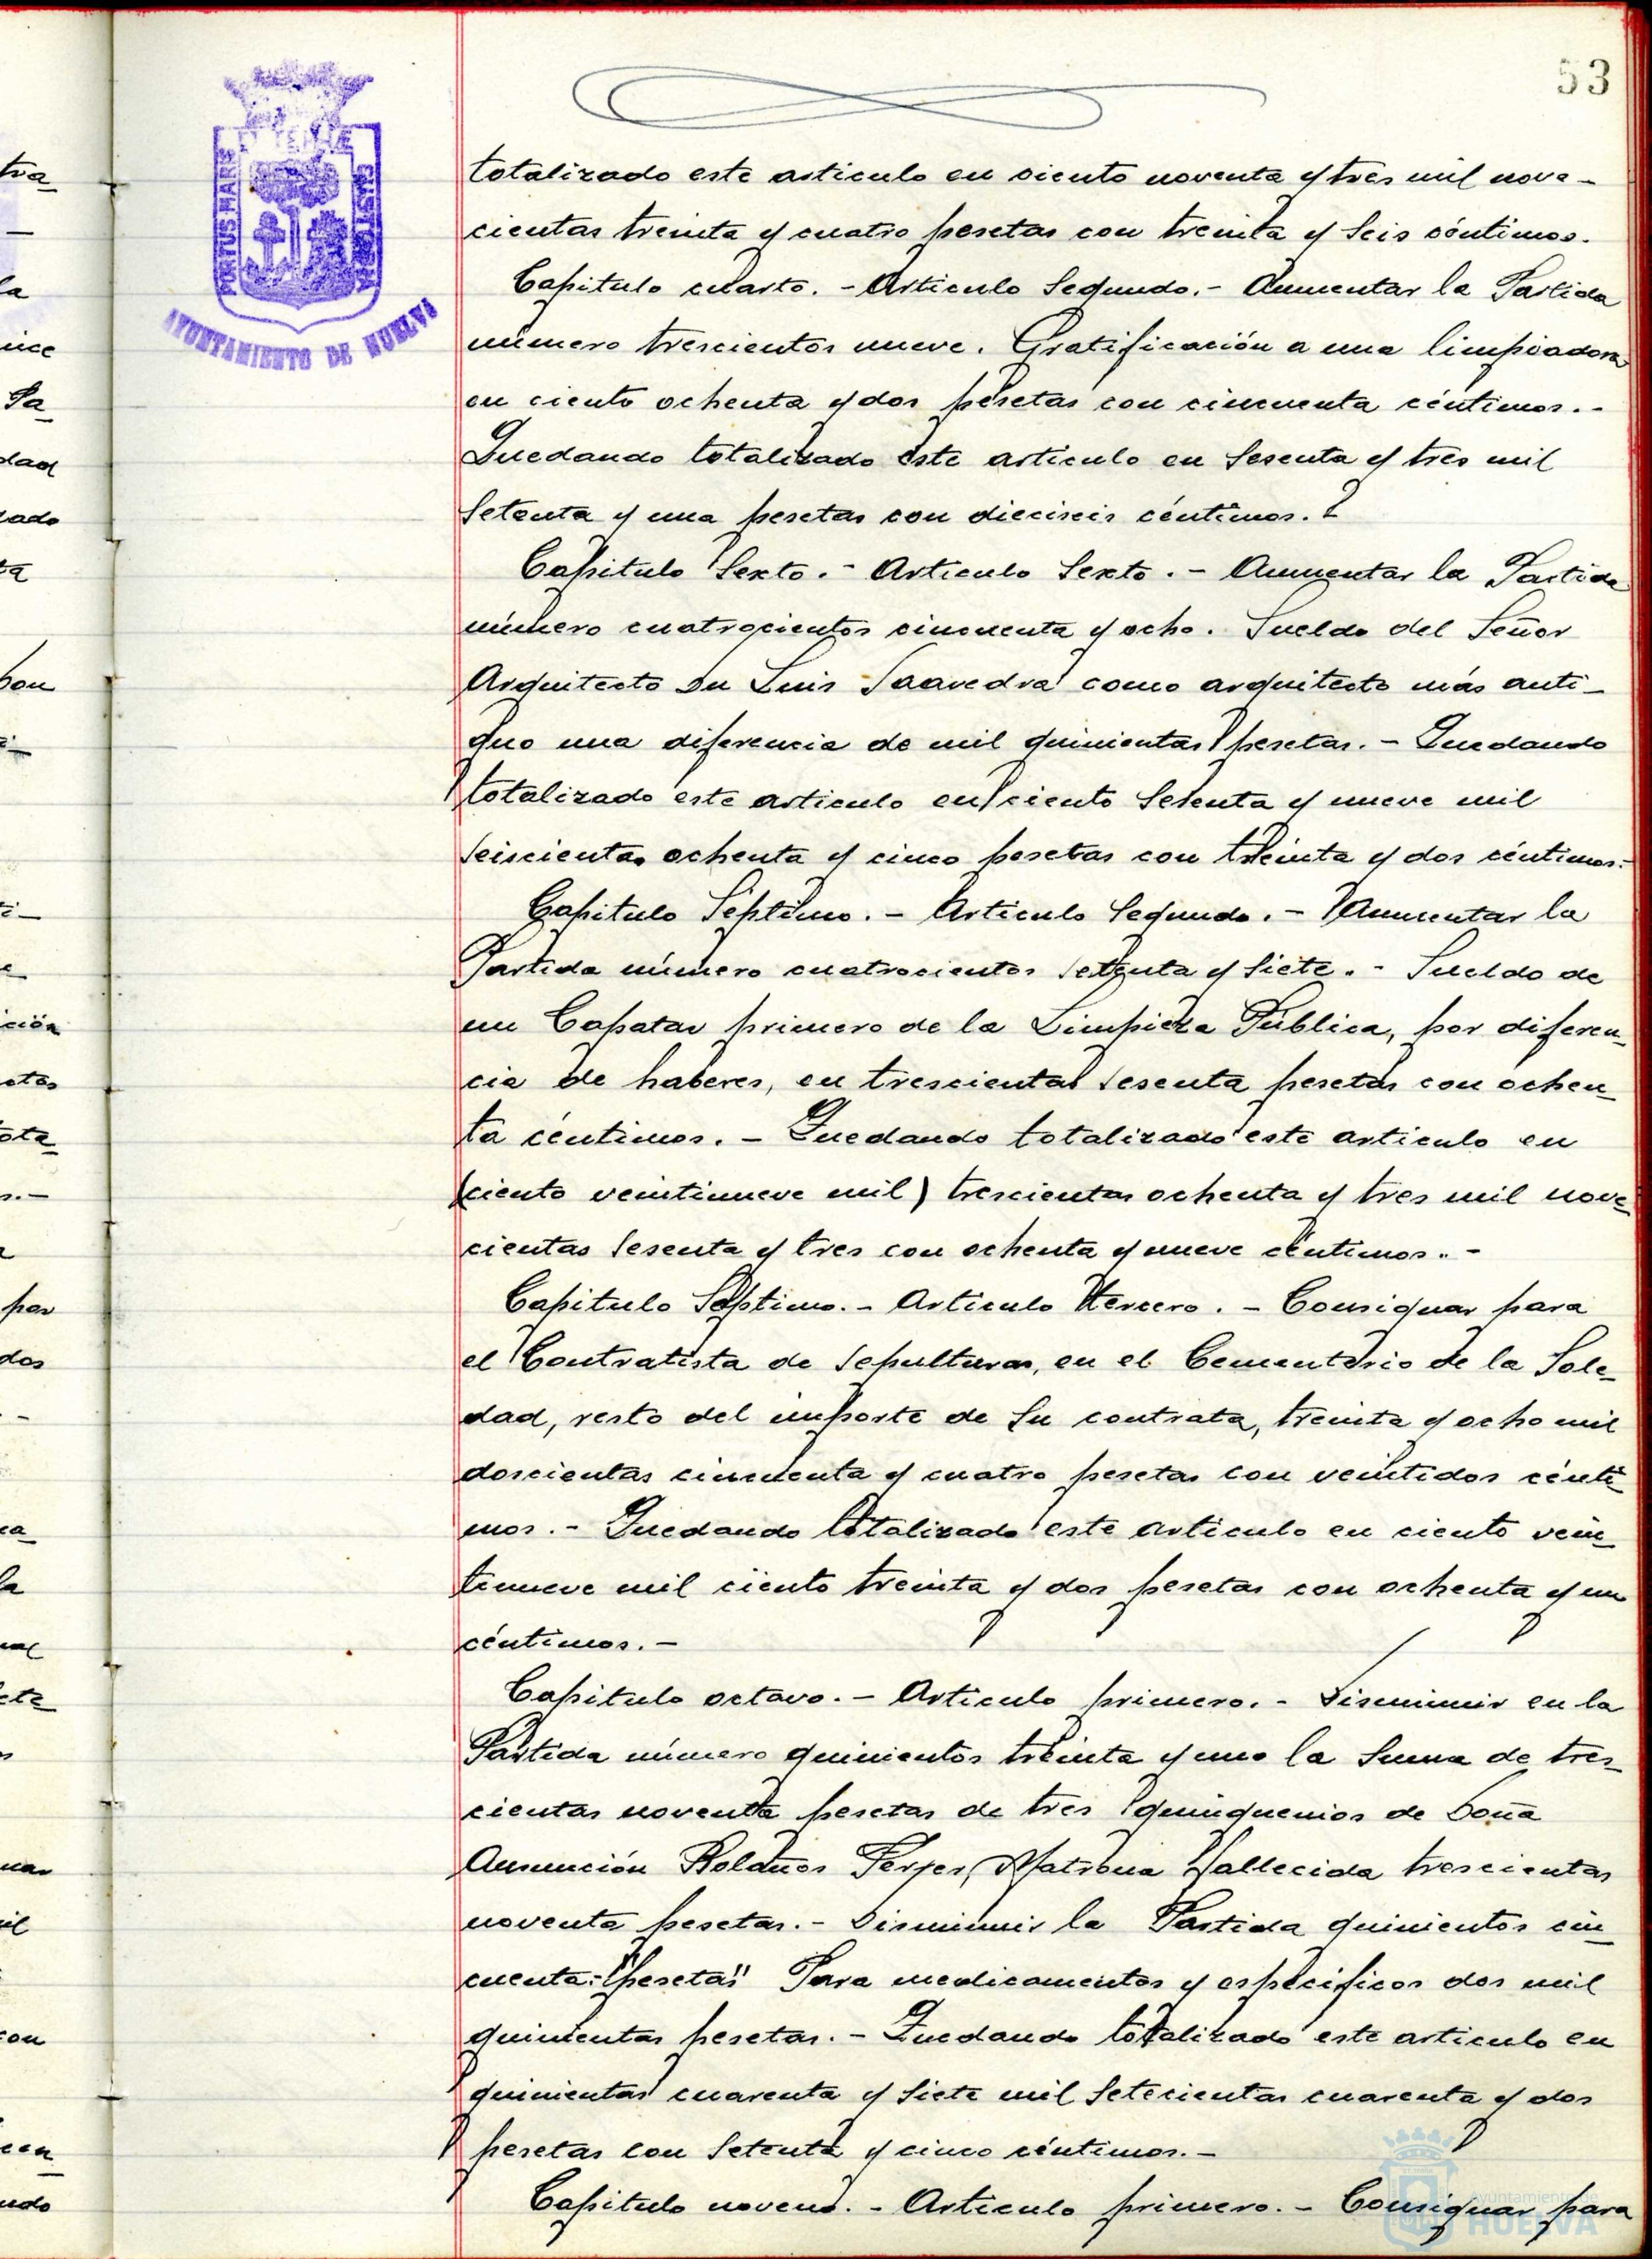 53
PORTUS MARIS
ET TERRÆ
CUSTODIA
AYUNTAMIENTO DE HUELVA
totalizado este articulo en ciento noventa y tres mil nove-
cientas treinta y cuatro pesetas con treinta y seis céntimos.
Capitulo cuarto. - Articulo Segundo. - Aumentar la Partida
número trescientos nueve. Gratificación a una limpiadora
en ciento ochenta y dos pesetas con cincuenta céntimos. -
Quedando totalizado este articulo en sesenta y tres mil
setenta y una pesetas con dieciseis céntimos.
Capitulo Sexto. - Articulo Sexto. - Aumentar la Partida
número cuatrocientos cincuenta y ocho. Sueldo del Señor
Arquitecto Dn Luis Saavedra como arquitecto más anti-
guo una diferencia de mil quinientas pesetas. - Quedando
totalizado este articulo en ciento setenta y nueve mil
seiscientas ochenta y cinco pesetas con treinta y dos céntimos.-
Capitulo Séptimo. - Articulo Segundo. - Aumentar la
Partida número cuatrocientos setenta y siete. - Sueldo de
un Capataz primero de la Limpieza Pública, por diferen-
cia de haberes, en trescientas sesenta pesetas con ochen-
ta céntimos. - Quedando totalizado este articulo en
(ciento veintinueve mil) trescientas ochenta y tres mil nove-
cientas sesenta y tres con ochenta y nueve céntimos. -
Capitulo Séptimo. - Articulo tercero. - Consignar para
el Contratista de sepulturas, en el Cementerio de la Sole-
dad, resto del importe de su contrata, treinta y ocho mil
doscientas cincuenta y cuatro pesetas con veintidos cénti-
mos. - Quedando totalizado este articulo en ciento vein-
tinueve mil ciento treinta y dos pesetas con ochenta y un
céntimos. -
Capitulo octavo. - Articulo primero. - Disminuir en la
Partida número quinientos treinta y uno la suma de tres-
cientas noventa pesetas de tres quinquenios de Doña
Asunción Bolaños Ferrer, Matrona fallecida trescientas
noventa pesetas. - Disminuir la Partida quinientos cin-
cuenta: "pesetas" Para medicamentos y especificos dos mil
quinientas pesetas. - Quedando totalizado este articulo en
quinientas cuarenta y siete mil setecientas cuarenta y dos
pesetas con setenta y cinco céntimos. -
Capitulo noveno. - Articulo primero. - Consignar para
Ayuntamiento de
HUELVA